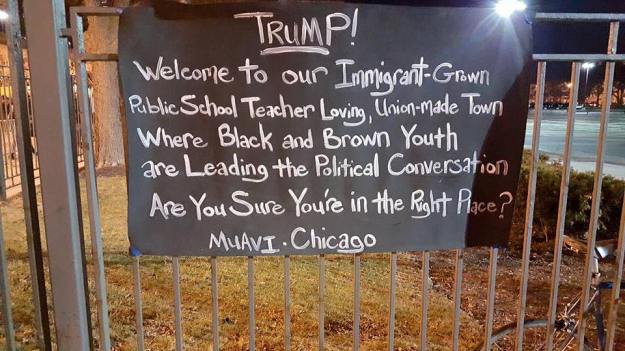 TRUMP!
Welcome to our Immigrant-Grown
Public School Teacher Loving, Union-made Town
Where Black and Brown Youth
are Leading the Political Conversation
Are You Sure You're in the Right Place?
MUAVI · Chicago